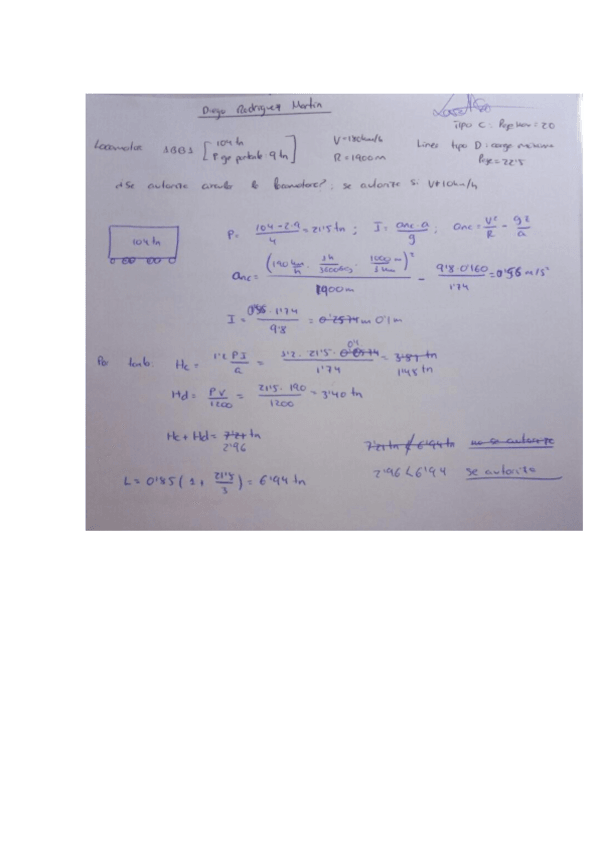 Diego Rodriguez Martin
Tipo C : Peje max = 20
Locomotora 1BB1 [ 104 tn
P eje portante 9 tn ]
V=180km/h
R=1900m
Línea tipo D : carga máxima
Peje = 22'5
¿Se autoriza circular la locomotora? ; se autoriza si V+10km/h
104 tn
P= (104-2·9)/4 = 21'5 tn ; I = (anc·a)/g ; anc = V²/R - g·z/a
anc = (190 km/h · 1h/3600seg · 1000 m/1 km)² / 1900m - 9'8·0'160/1'74 = 0'56 m/s²
I = 0'56·1'74/9'8 = 0'2574m 0'1m
Por tanto Hc = 1'2 PI/a = 1'2 · 21'5 · 0'2574 0'1/1'74 = 3'87 tn
1'48 tn
Hd = PV/1200 = 21'5 · 190/1200 = 3'40 tn
Hc + Hd = 7'27 tn
2'96
7'27 tn ≮ 6'94 tn no se autoriza
L = 0'85 ( 1 + 21'5/3 ) = 6'94 tn
2'96 < 6'94 se autoriza